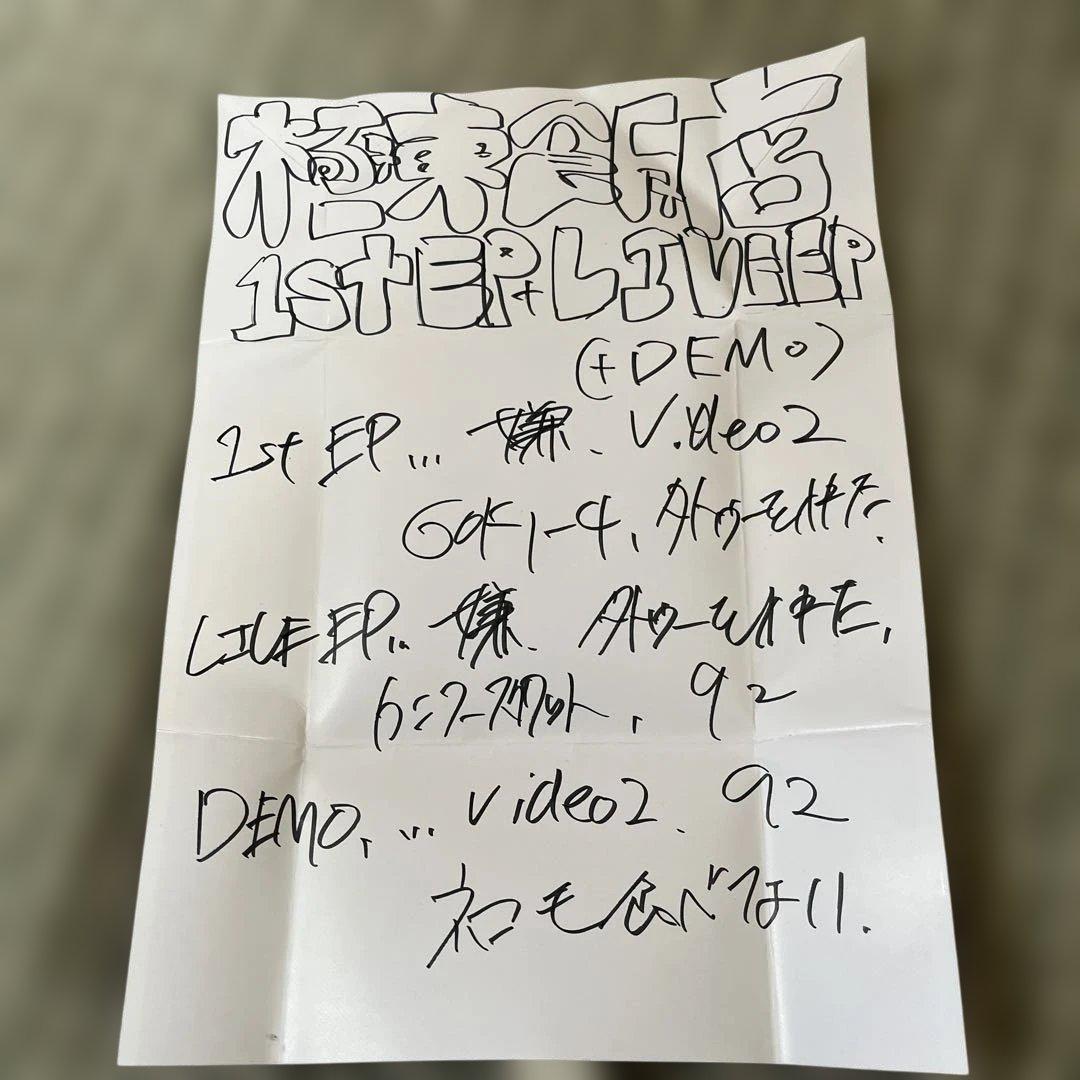 極東飯店
1st EP+LIVE EP
(+DEMO)
1st EP... 嫌、Video2
GOKI-4、タトゥーを
LIVE EP... 嫌、タトゥーを
カニフースクワット、92
DEMO, ... video2、92
ネコも食べない.